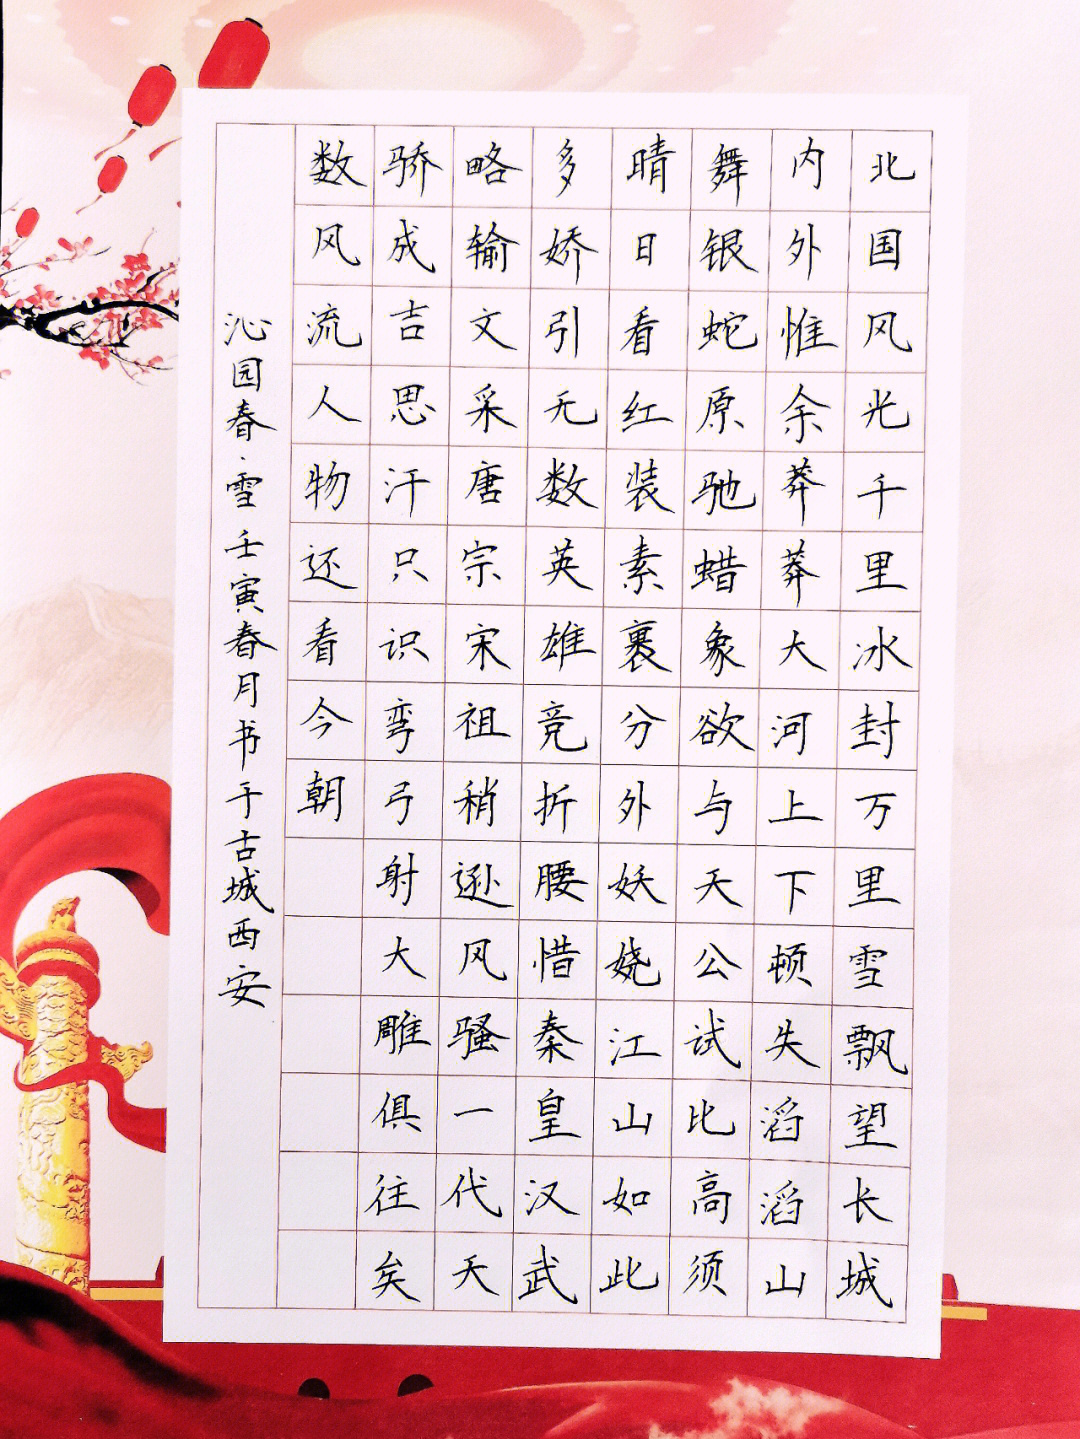 北国风光千里冰封万里雪飘望长城
内外惟余莽莽大河上下顿失滔滔山
舞银蛇原驰蜡象欲与天公试比高须
晴日看红装素裹分外妖娆江山如此
多娇引无数英雄竞折腰惜秦皇汉武
略输文采唐宗宋祖稍逊风骚一代天
骄成吉思汗只识弯弓射大雕俱往矣
数风流人物还看今朝
沁园春·雪 壬寅春月书于古城西安